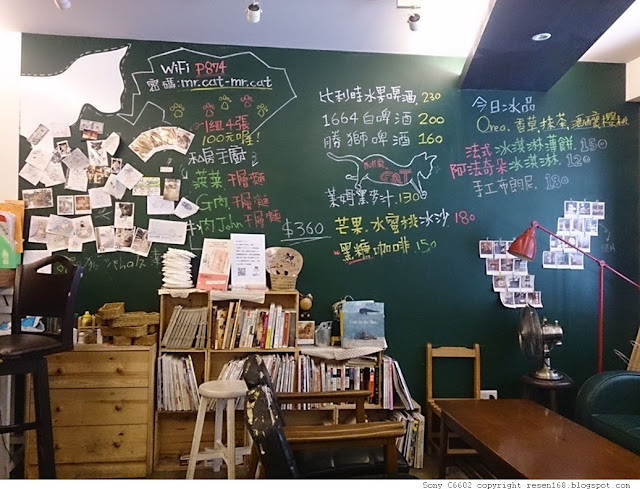 WiFi P874
密碼:mr.cat-mr.cat
1組4張
100元喔!
私房主廚
菠菜千層麵
G肉千層麵
牛肉John千層麵
$360
比利時水果啤酒 230
1664白啤酒 200
勝獅啤酒 160
CAT
萊姆黑麥汁 130
芒果.水蜜桃冰沙 180
黑糖咖啡 150
今日冰品
Oreo.香草.抹茶.酒釀櫻桃
法式冰淇淋薄餅 150
阿法奇朵冰淇淋 120
手工布朗尼 180
Sony C6602 copyright resen168.blogspot.com